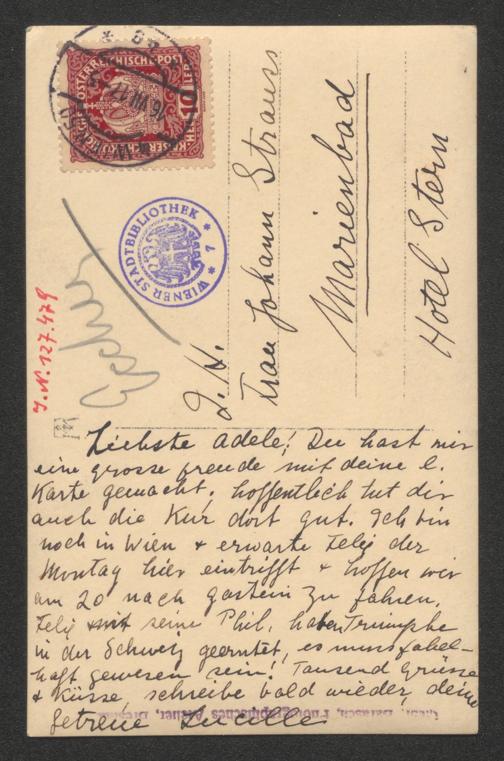 KAISERLICHE KÖNIGLICHE ÖSTERREICHISCHE POST
10 HELLER
16 VII 17
WIENER STADTBIBLIOTHEK * 7 *
J.N. 127.479
Frau Johann Strauss
Marienbad
Hotel Stern
Liebste Adele! Du hast mir
eine grosse freude mit deine l.
Karte gemacht, hoffentlich tut dir
auch die Kur dort gut. Ich bin
noch in Wien + erwarte Felix der
Montag hier eintrifft + hoffen wir
am 20 nach gastein zu fahren.
Felix + seine Phil. haben Trumphe
in der Schweiz geerntet, es muss fabel-
haft gewesen sein! Tausend Grüsse
+ Küsse, schreibe bald wieder, deine
getreue Lucille
Photographisches Atelier,